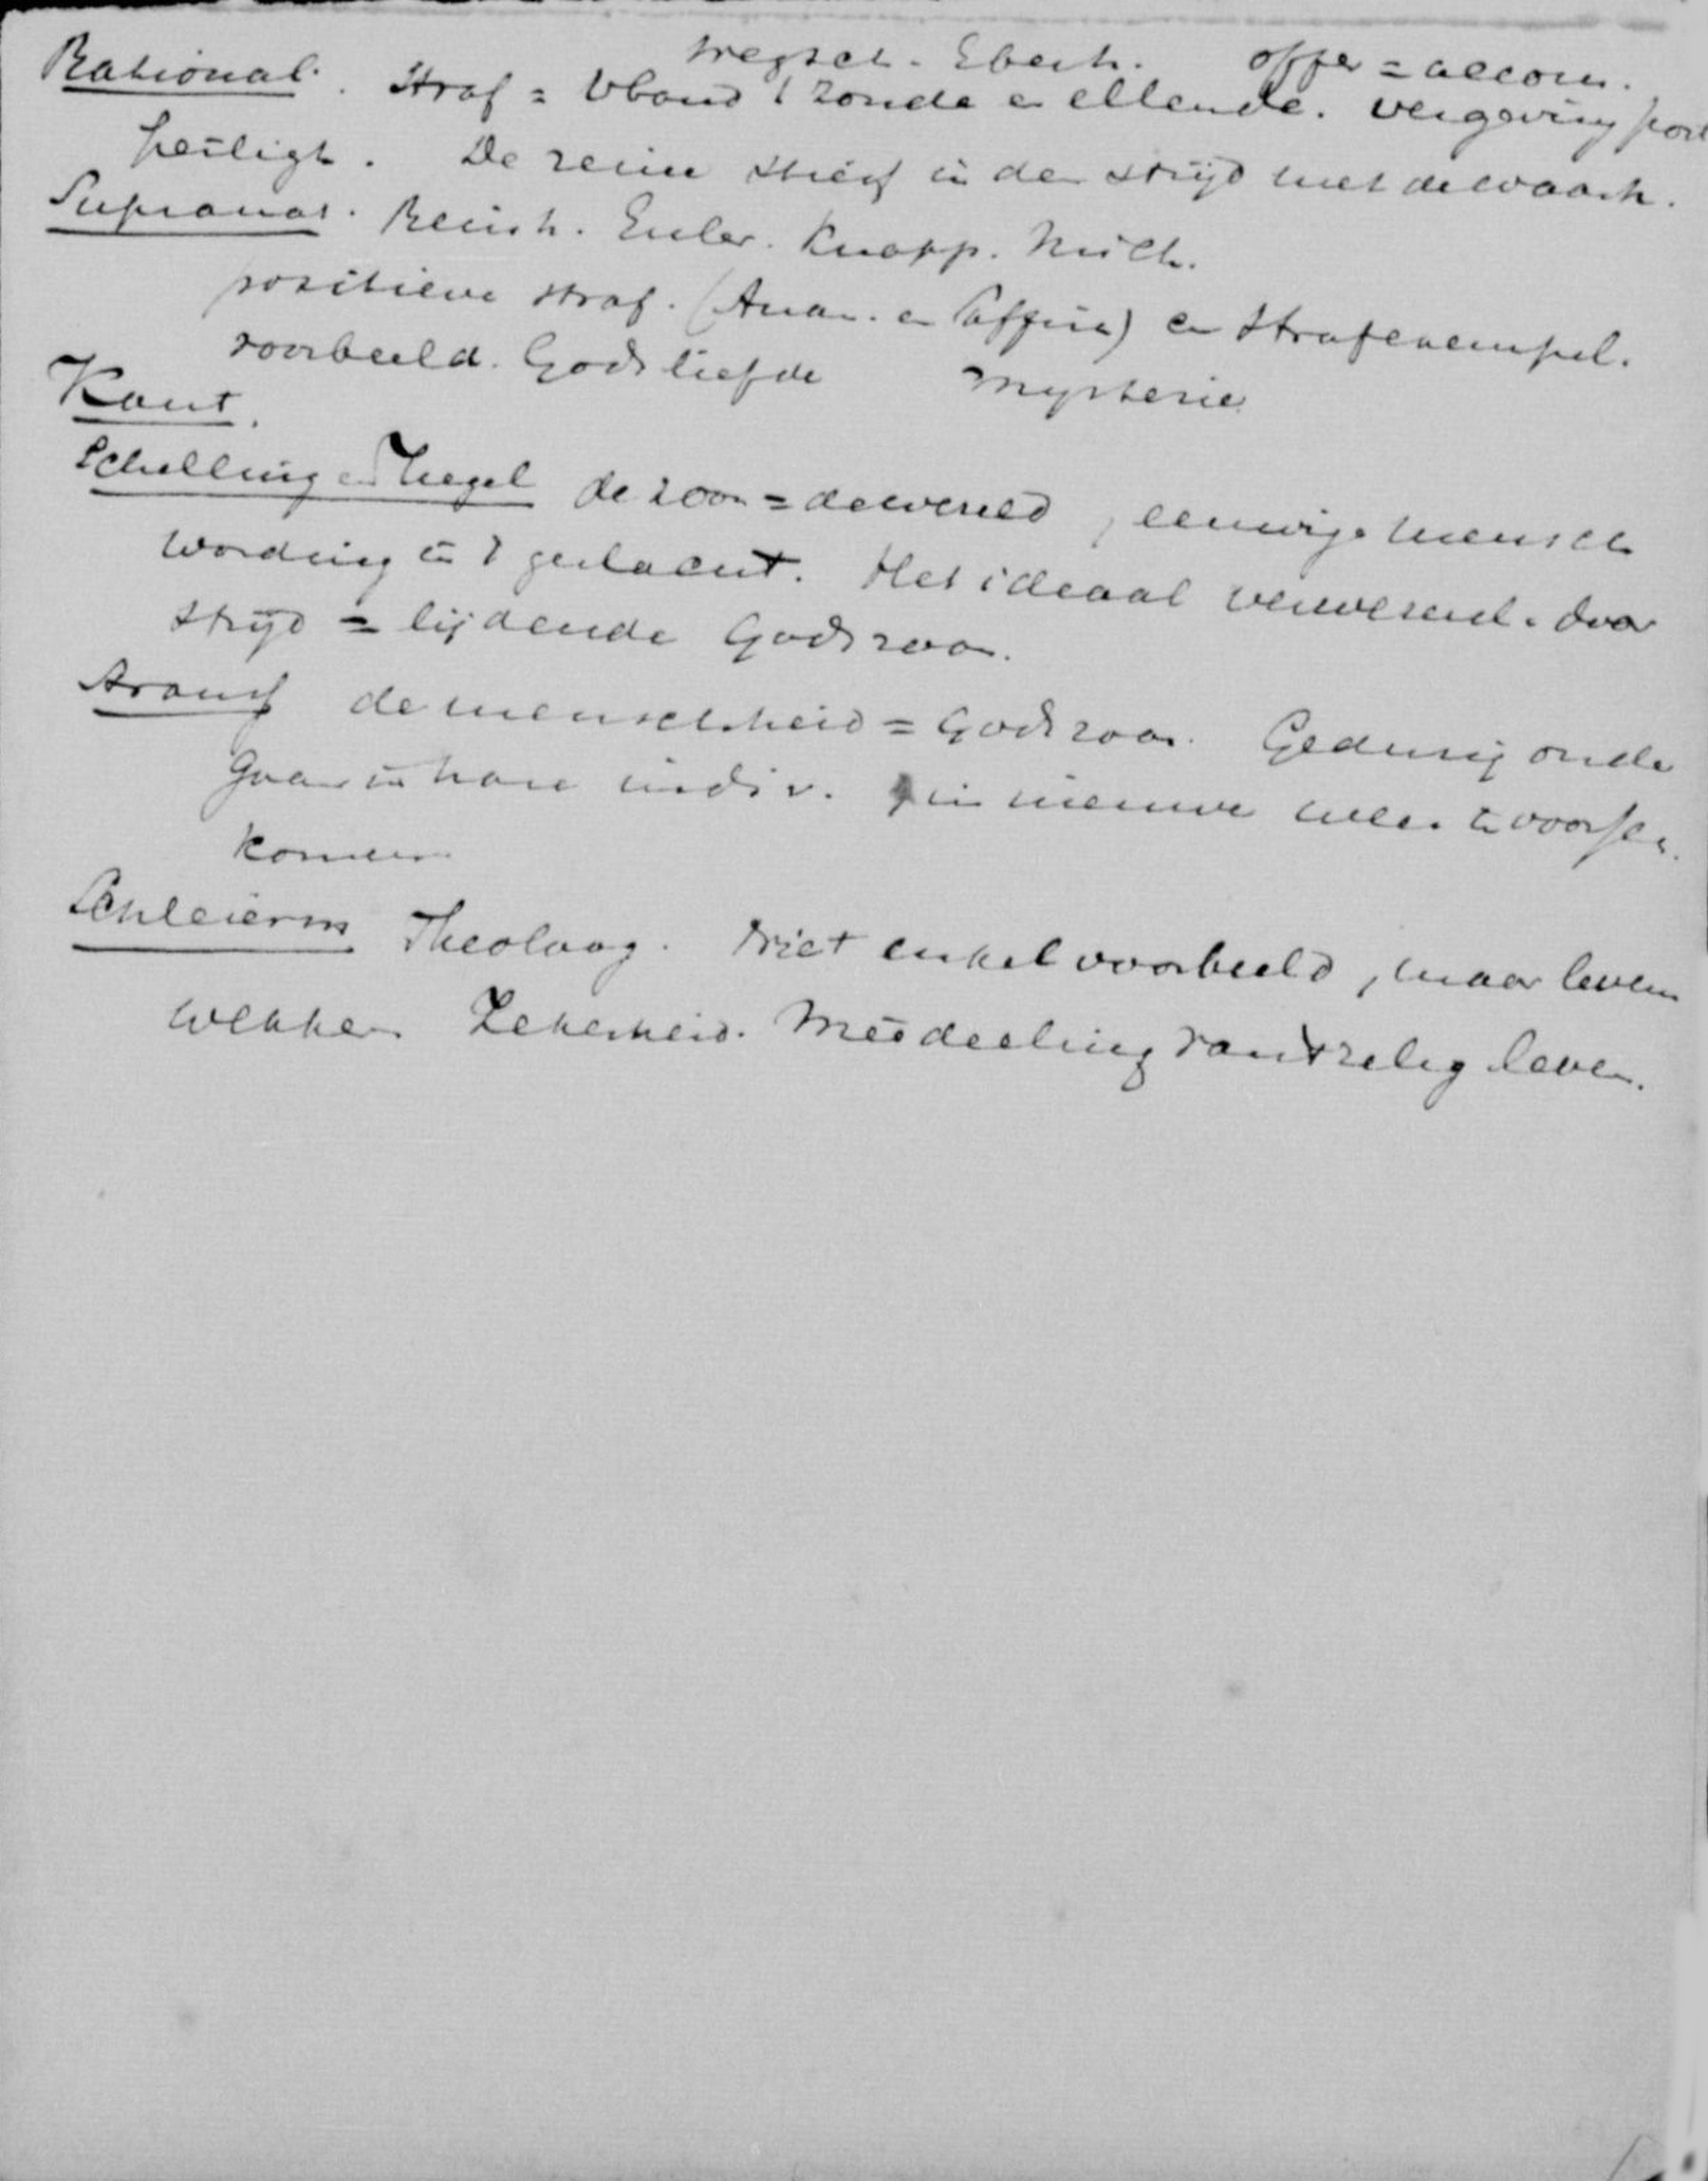 Wegsch. Eberh. offer = accom.
Rational. Straf = vband t zonde en ellende. Vergeving post
heiligh. De reine stierf in den strijd met de waarh.
Supranat. Reinh. Euler. Knapp.
positieve straf. (Anan. en Saffira) en Strafexempel.
voorbeeld. Gods liefde Mysterie
Kant.
Schelling en Hegel de zoon = de wereld, eeuwige mensch
wording in 't geslacht. Het ideaal verwezenl. door
strijd = lijdende Gods zoon.
Strauss de menschheid = Gods zoon. Gedurig onder
gaan in hare indiv. in nieuwe weer te voorsch.
komen
Schleierm Theoloog. Niet enkel voorbeeld, maar leven
wekken Zekerheid. Meedeeling van 't zalig leven.